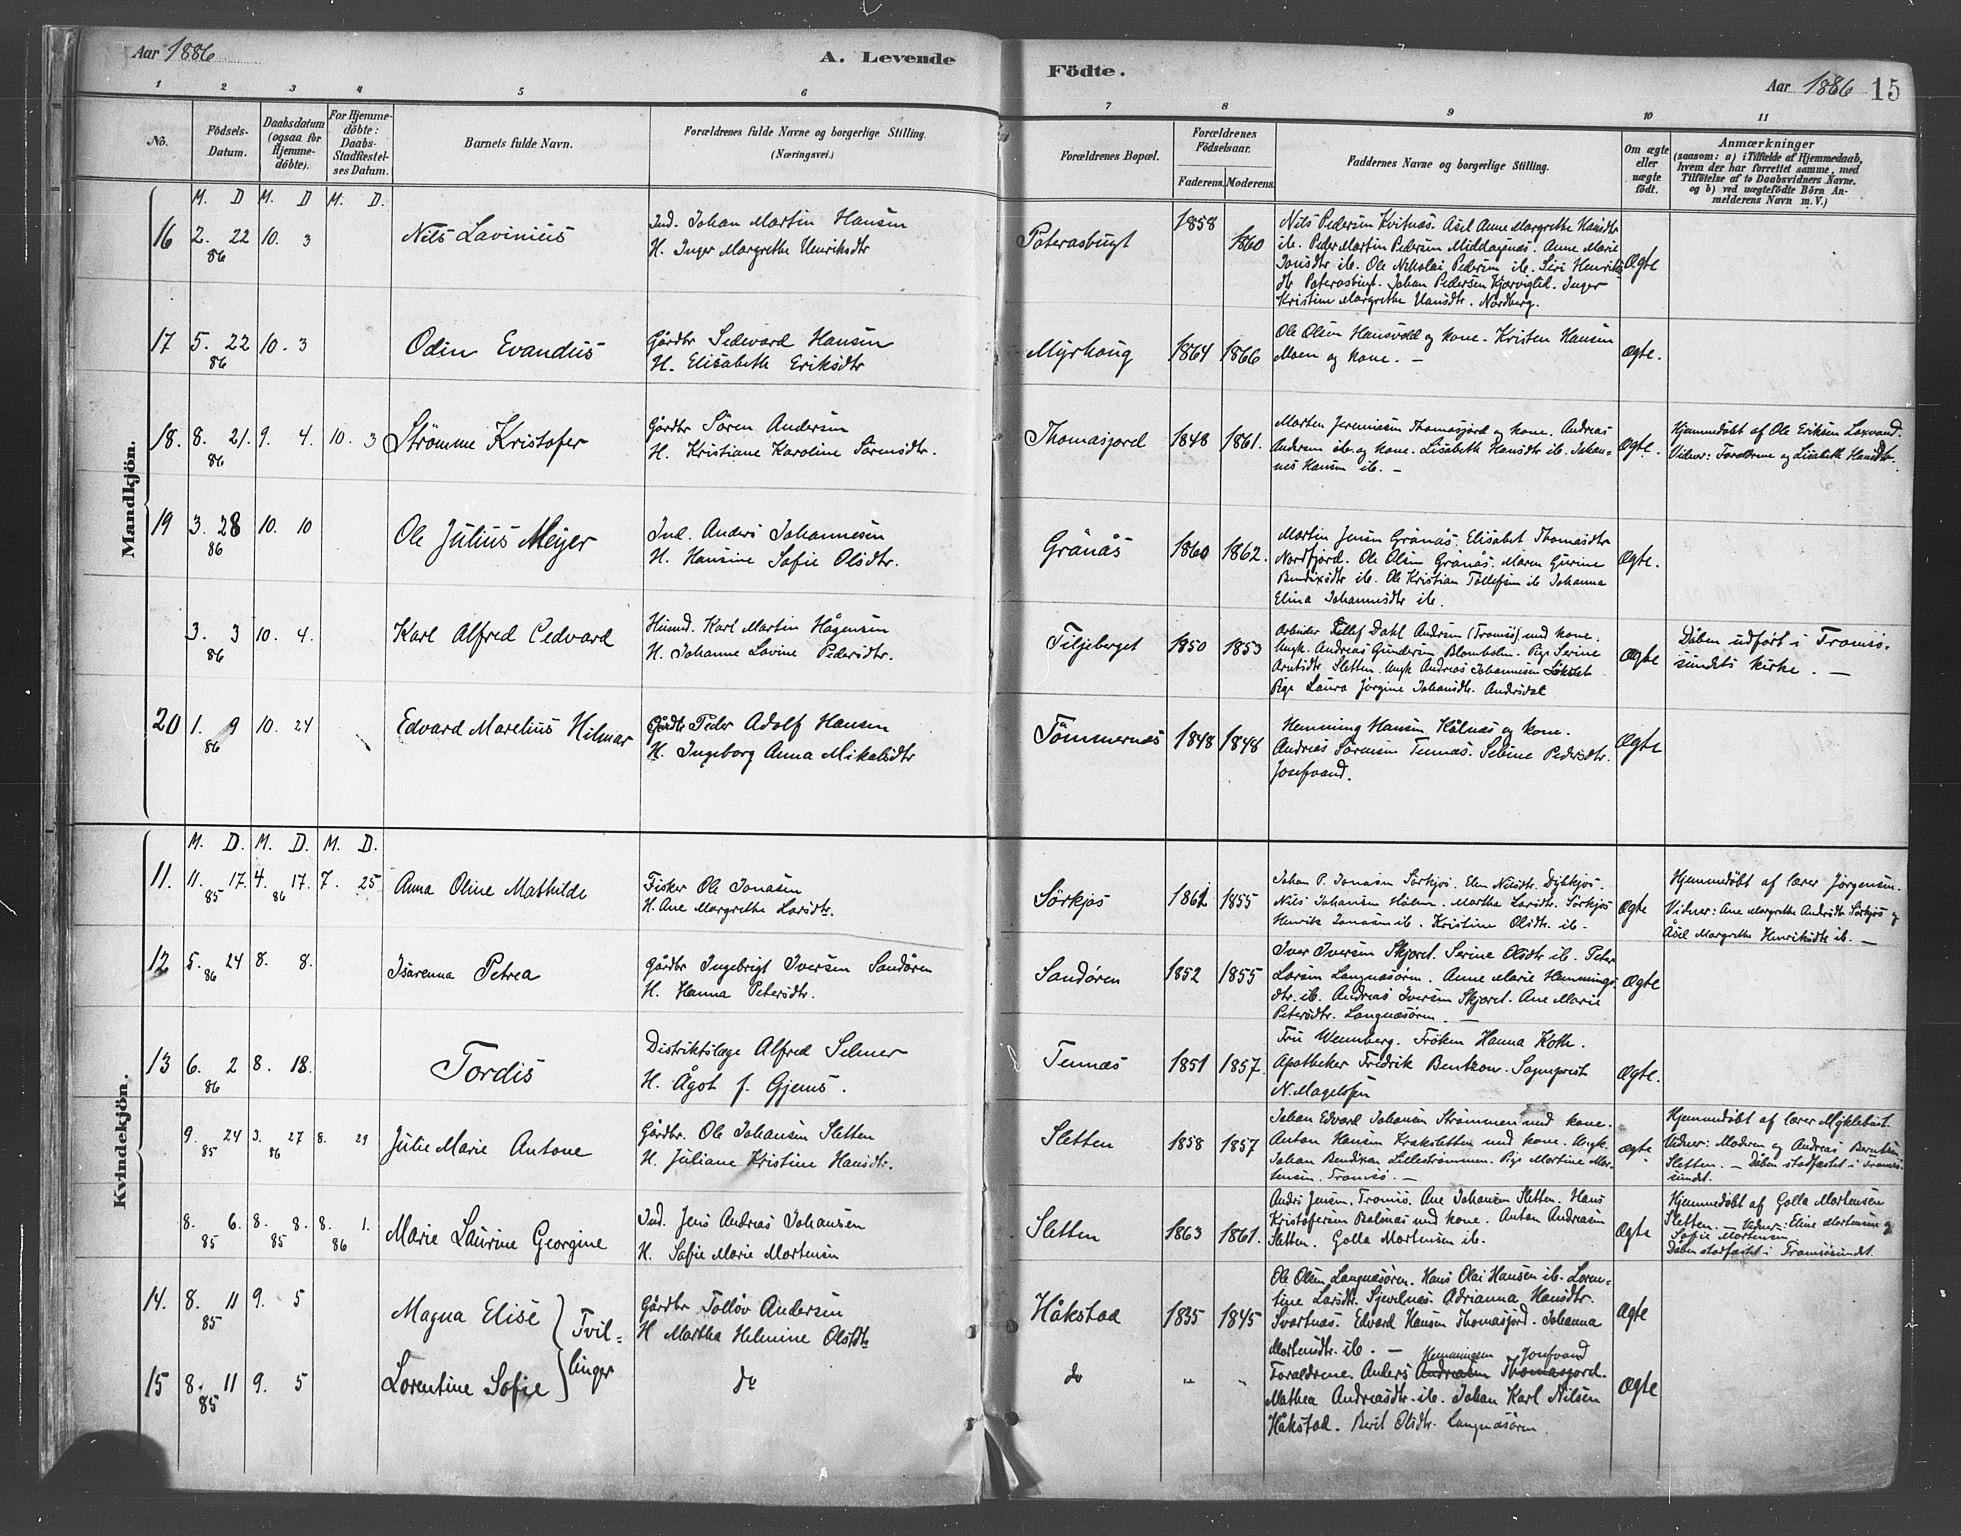 Aar 1886
A. Levende
Födte.
Aar 1886
15
1 2 3 4 5 6 7 8 9 10 11
No.
Födsels-
Datum.
Daabsdatum
(ogsaa for
Hjemme-
döbte).
For Hjemme-
döbte:
Daabs-
Stadfæstel-
ses Datum.
Barnets fulde Navn.
Forældrenes fulde Navne og borgerlige Stilling.
(Næringsvei.)
Forældrenes Bopæl.
Forældrenes
Födselsaar.
Faderens. Moderens.
Faddernes Navne og borgerlige Stilling.
Om ægte
eller
uægte
födt.
Anmærkninger
(saasom: a) i Tilfælde af Hjemmedaab,
hvem der har forrettet samme, med
Tilföielse af to Daabsvidners Navne,
og b) ved uægtefödte Börn An-
melderens Navn m. V.)
Mandkjön.
M. D M. D M. D.
16 2. 22 86 10. 3
Nils Lavinius
Ind. Johan Martin Hansen
H. Inger Margrethe Henriksdtr
Paterasbugt
1858 1860
Nils Pedersen Kvitnæs. Asel Anne Margrethe Hansdtr
ib. Peder Martin Pedersen Middagsnæs. Anne Marie
Jonsdtr ib. Ole Nikolai Pedersen ib. Siri Henriks
dtr Paterasbugt. Johan Pedersen. Inger
Kristine Margrethe Hansdtr. Nordberg.
Ægte
17 5. 22 86 10. 3
Odin Evandus
Gårdbr Sedevard Hansen
H. Elisabeth Eriksdtr
Myrhaug
1864 1866
Ole Olsen Hansvold og kone. Kristen Hansen
Moen og kone. —
Ægte.
18. 8. 21. 86 9. 4. 10. 3
Strømme Kristofer
Gårdbr Sören Andersen
H. Kristiane Karoline Sörensdtr.
Thomasjord
1848 1861.
Morten Jeremiasen Thomasjord og kone. Andreas
Andersen ib. og kone. Lisabeth Hansdtr ib. Johan-
nes Hansen ib. —
Ægte.
Hjemmedøbt af Ole Eriksen Laxvand.
Vidner: Forældrene og Lisabeth Hansdtr.
19 3. 28 86 10. 10
Ole Julius Meyer
Ind. Anders Johannesen
H. Hansine Sofie Olsdtr.
Grånås
1860 1862.
Martin Jensen Grånås. Elisabet Thomasdtr
Nordfjord. Ole Olsen Grånås. Maren Gurine
Bendixsdtr ib. Ole Kristian Tollefsen ib. Johanna
Elina Johannesdtr ib.
Ægte.
3. 3 86 10. 4.
Karl Alfred Cedvard
Husmd. Karl Martin Hågensen
H. Johanne Lovine Pedersdtr.
Tiljeberget
1850 1853
Arbeider Dahl Andersen (Tromsö) med kone.
Ungk. Andreas Gundersen Blomholm. Pige Serine
Arntsdtr Sletten. Ungk Andreas Johannesen
Pige Laura Jörgine Johansdtr. Andersdal
Ægte
Dåben udført i Tromsö-
sundets kirke. —
20 1. 9 86 10. 24
Edvard Marelius Hilmar
Gårdbr Peder Adolf Hansen
H. Ingeborg Anna Mikalsdtr
Tömmernæs
1848 1848
Hemming Hansen Kålnæs og kone.
Andreas Sörensen Tennæs. Sebine Pedersdtr.
Josefvand.
Ægte
Kvindekjön.
M. D. M. D. M. D.
11. 11. 17. 85 4. 17. 86 7. 25
Anna Oline Mathilde
Fisker Ole Jonasen
H. Ane Margrethe Larsdtr.
Sörkjos
1862 1855
Johan P. Jonasen Sörkjos. Elen Nilsdtr. Dybkjos.
Nils Johansen Holm. Martha Larsdtr. Sörkjos
Henrik Jonasen ib. Kristine Olsdtr. ib.
Ægte
Hjemmedøbt af lærer Jörgensen.
Vidner: Ane Margrethe Andersdtr Sörkjos og
Åsel Margrethe Henriksdtr ib. —
12 5. 24 86 8. 8.
Isarenna Petrea
Gårdbr Ingebrigt Iversen Sandören
H. Hanna Petersdtr.
Sandören
1852 1855
Iver Iversen Skjæret. Serine Olsdtr ib. Peter
Larsen Langnæsören. Anne Marie Hemmings-
dtr. ib. Andreas Iversen Skjæret. Ane Marie
Petersdtr. Langnæsören. —
Ægte
13 6. 2 86 8. 18.
Tordis
Distriktslæge Alfred Selmer
H. Ågot f. Gjems.
Tennæs
1851 1857.
Fru Wennberg. Fröken Hanna Koth.
Apotheker Fredrik Bentzon. Sognprest
N. Magelssen
Ægte.
9. 24 85 3. 27 86 8. 29
Julie Marie Antone
Gårdbr. Ole Johansen Sletten
H. Juliane Kristine Hansdtr.
Sletten
1858 1857
Johan Edvard Johansen Strömmen med kone.
Anton Hansen Kraksletten med kone. Ungk.
Johan Bendixen Lillestrømmen. Pige Martine Mor-
tensen. Tromsö. —
ægte
Hjemmedøbt af lærer Myklebust.
Vidner: Moderen og Andreas Berntsen
Sletten. — Dåben stadfæstet i Tromsö
sundet.
8. 6. 85 8. 8. 85 8. 1. 86
Marie Laurine Georgine
Ind. Jens Andreas Johansen
H. Sofie Marie Mortensen
Sletten
1863 1861.
Anders Jensen. Tromsö. Ane Johansen Sletten. Hans
Kristofersen Balsnæs med kone. Anton Andreasen
Sletten. Golla Mortensen ib.
Ægte
Hjemmedøbt af Golla Mortensen
Sletten. — Vidner: Eline Mortensen og
Sofie Mortensen
Dåben stadfæstet i Tromsösundet.
14. 8. 11 85 9. 5
Magna Elise
Tvil-
linger
Gårdbr Tolløv Andersen
H Martha Helmine Olsdtr
Håkstad
1835 1845
Ole Olsen Langnæsören. Hans Olai Hansen ib. Loren-
tine Larsdtr. Adrianna Hansdtr.
Svartnæs. Edvard Hansen Thomasjord. Johanna
Mortensdtr. ib. —
Ægte
15 8. 11 85 9. 5
Lorentine Sofie
do
do
" "
Hemmingsen Josefvand
Forældrene. Anders Andreasen Thomasjord.
Mathea Andreasdtr. ib. Johan Karl Nilsen
Håkstad. Berit Olsdtr. Langnæsören.
Ægte